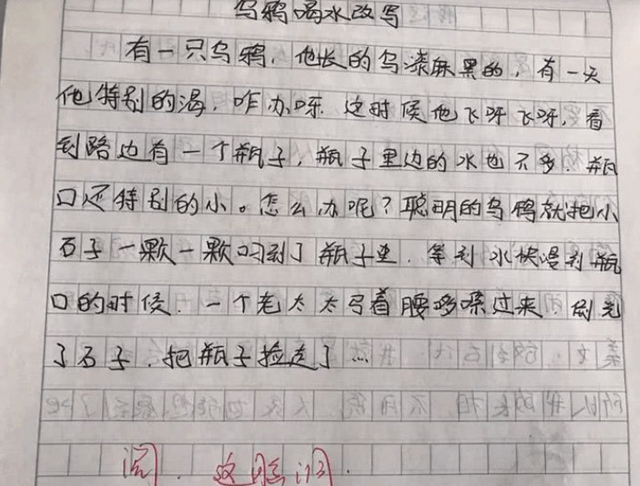 乌鸦喝水改写
有一只乌鸦,他长的乌漆麻黑的,有一天
他特别的渴,咋办呀.这时候他飞呀飞呀,看
到路边有一个瓶子,瓶子里边的水也不多.瓶
口还特别的小。怎么办呢?聪明的乌鸦就把小
石子一颗一颗叼到了瓶子里.等到水快漫到瓶
口的时候.一个老太太弓着腰哆嗦过来.倒光
了石子.把瓶子捡走了…
阅.